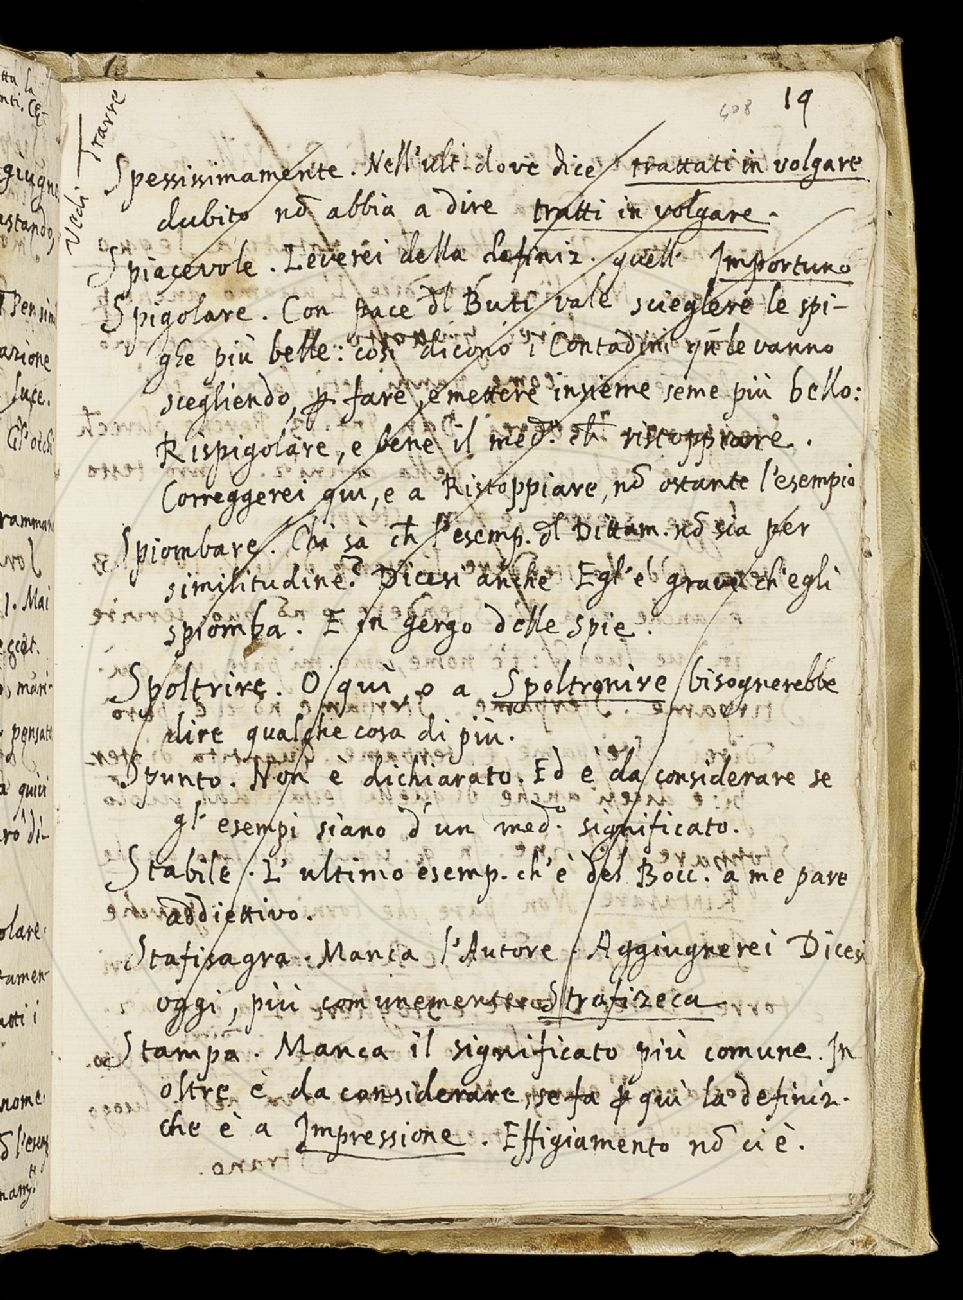 408 19
Vedi Trarre
Spessissimamente. Nell'ult. dove dice trattati in volgare
dubito nō abbia a dire tratti in volgare.
Spiacevole. Leverei della definiz. quell' Importuno
Spigolare. Con pace dl Buti vale scieglere le spi-
ghe più belle: così dicono i Contadini qn̄ le vanno
scegliendo, p fare, e mettere insieme seme più bello:
Rispigolare, e bene il med.o ch ristoppiare.
Correggerei qui, e a Ristoppiare, nō ostante l'esempio
Spiombare. Chi sà ch l'esemp. dl Dittam. nō sia per
similitudine? Dicesi anche Egl'è grave ch'egli
spiomba. E in gergo delle spie.
Spoltrire. O qui, o a Spoltronire bisognerebbe
dire qualche cosa di più.
Spunto. Non è dichiarato. Ed è da considerare se
gl' esempi siano d'un med.o significato.
Stabile. L'ultimo esemp. ch'è del Bocc. a me pare
addiettivo.
Stafisagra. Manca l'Autore. Aggiugnerei Dicesi
oggi, più comunemente Strafizeca
Stampa. Manca il significato più comune. In
oltre è da considerare, se fa p quì la definiz.
che è a Impressione. Effigiamento nō ci è.